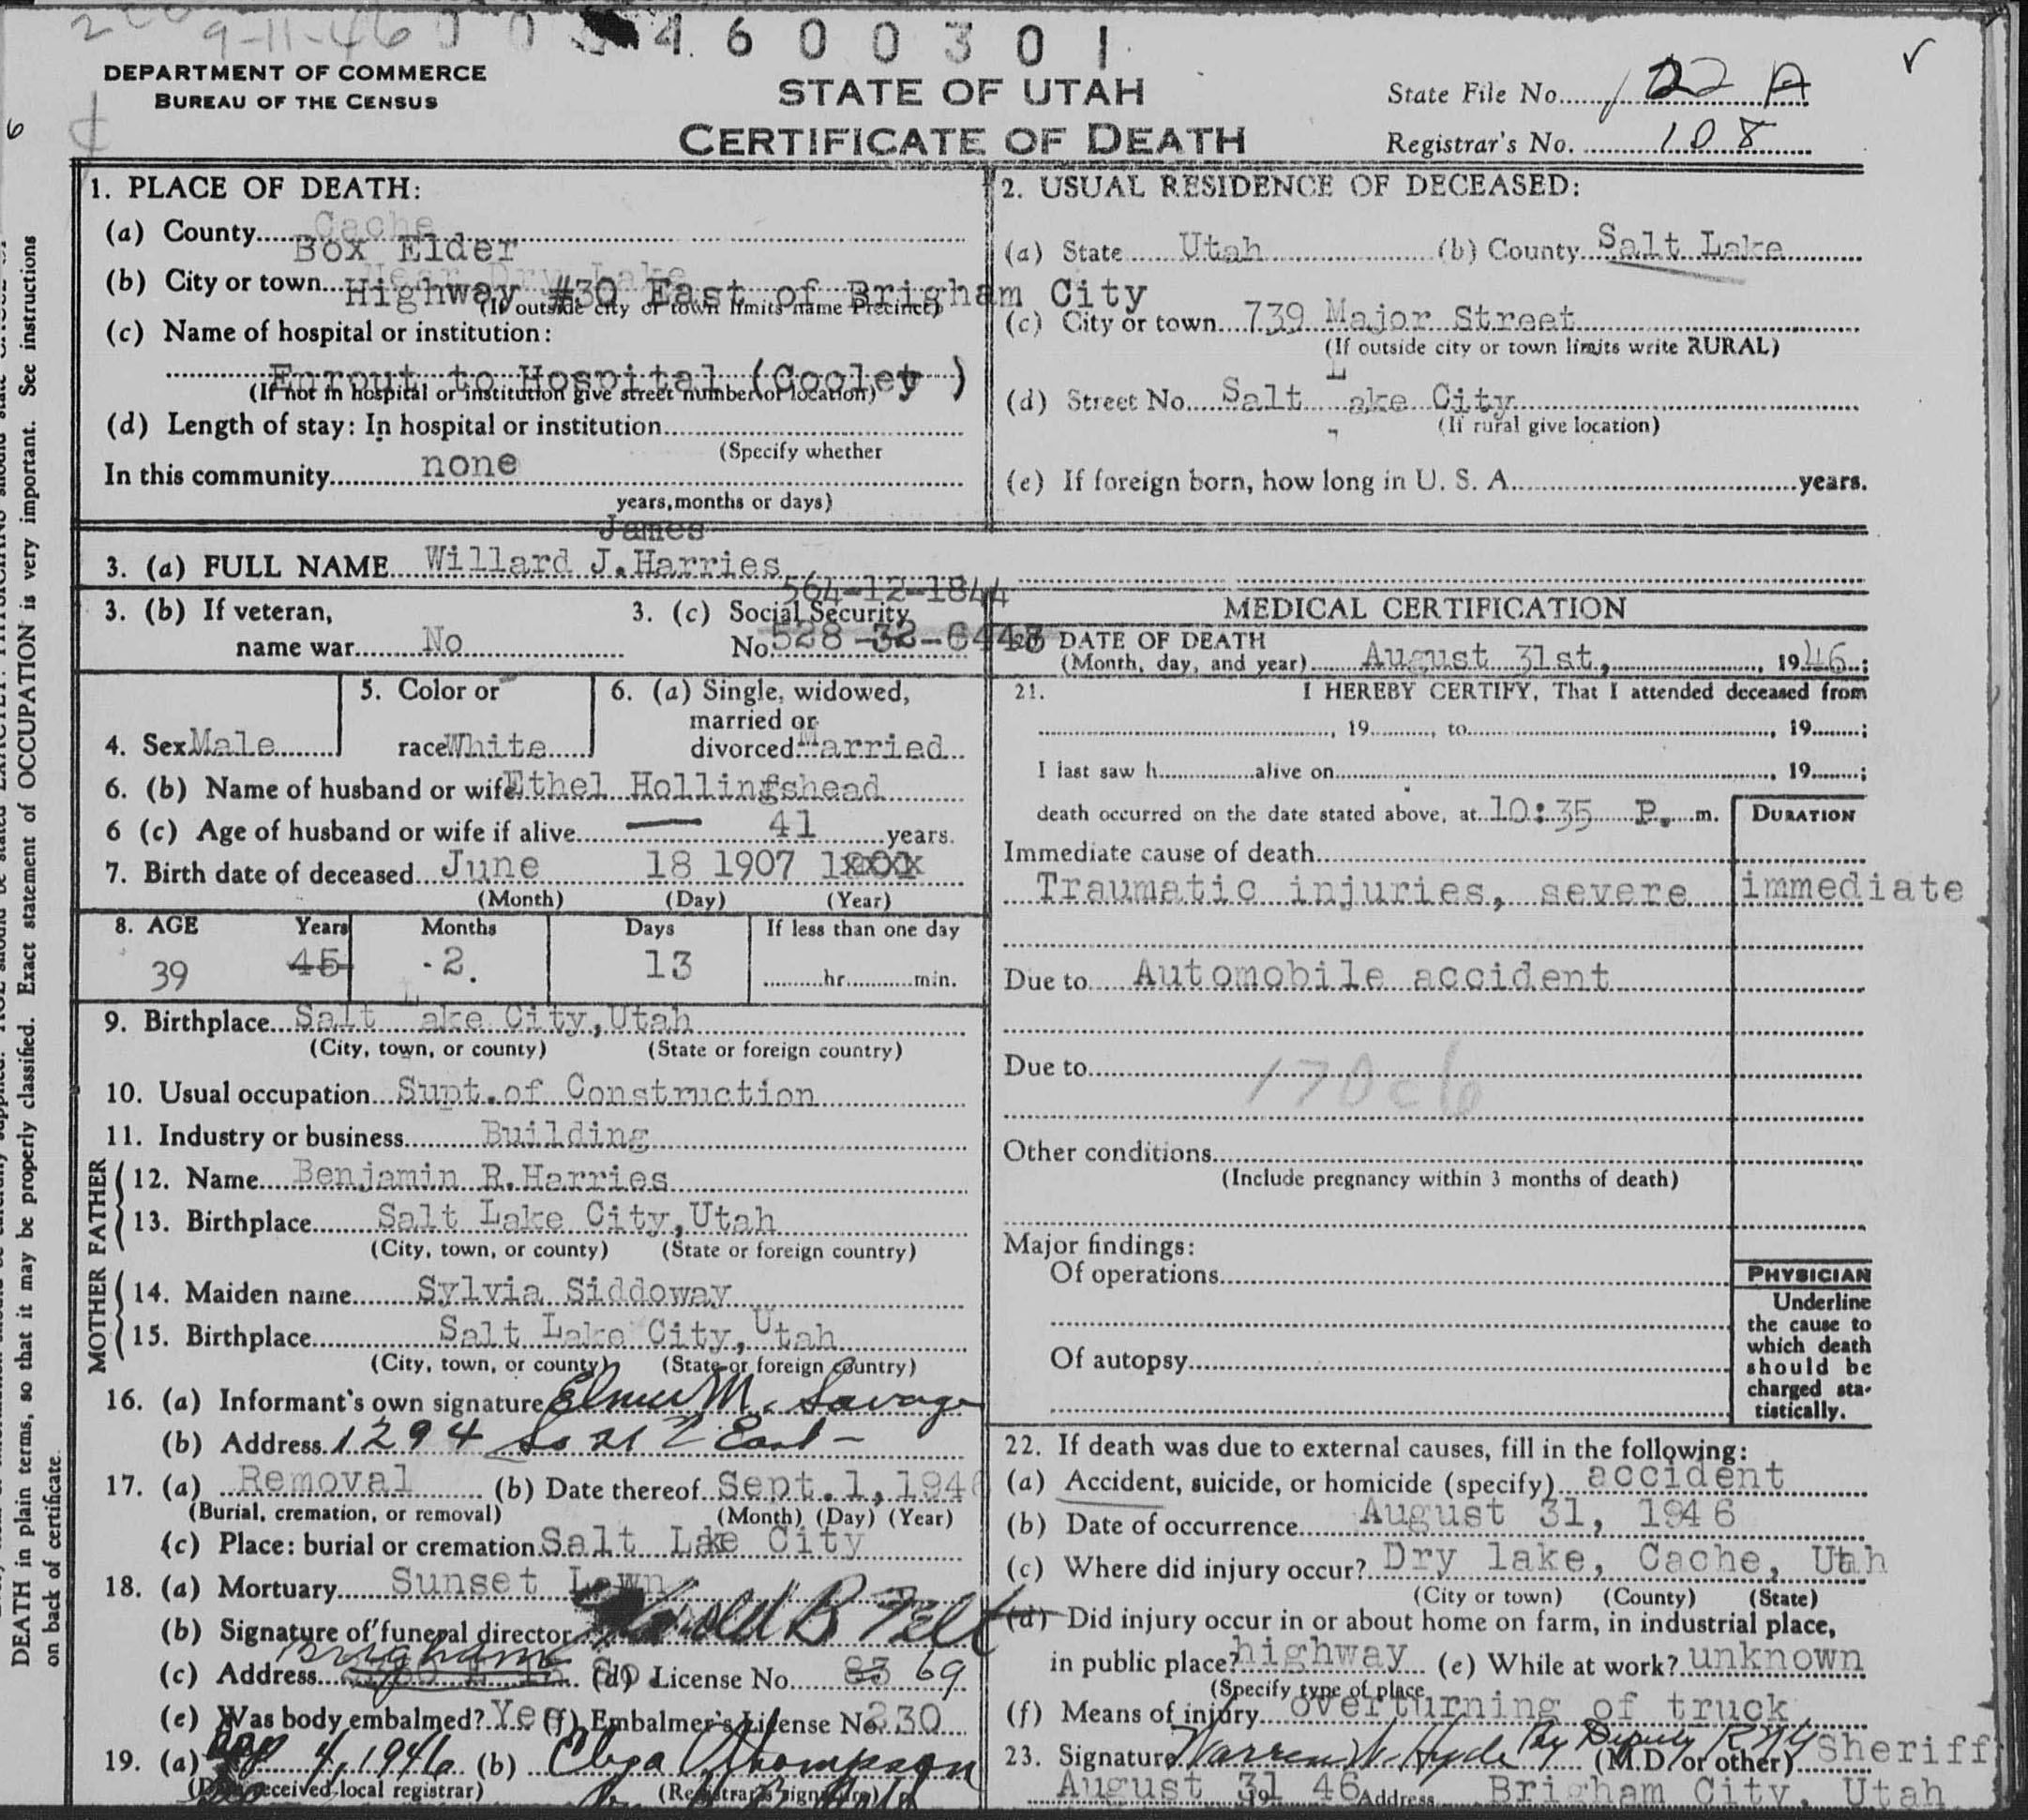 9-11-46
4600301
DEPARTMENT OF COMMERCE
BUREAU OF THE CENSUS
STATE OF UTAH
CERTIFICATE OF DEATH
State File No. 122 A
Registrar's No. 108
1. PLACE OF DEATH:
(a) County Cache
Box Elder
(b) City or town Near Dry Lake
Highway #30 East of Brigham City
(If outside city or town limits name Precinct)
(c) Name of hospital or institution:
Enrout to Hospital (Cooley )
(If not in hospital or institution give street number or location)
(d) Length of stay: In hospital or institution
(Specify whether
In this community none
years, months or days)
2. USUAL RESIDENCE OF DECEASED:
(a) State Utah (b) County Salt Lake
(c) City or town 739 Major Street
(If outside city or town limits write RURAL)
(d) Street No. Salt Lake City
(If rural give location)
(e) If foreign born, how long in U. S. A. years.
James
3. (a) FULL NAME Willard J. Harries
564-12-1844
3. (b) If veteran, 3. (c) Social Security
name war No No. 528-32-6448
4. Sex Male
5. Color or
race White
6. (a) Single, widowed,
married or
divorced Married
6. (b) Name of husband or wife Ethel Hollingshead
6 (c) Age of husband or wife if alive 41 years.
7. Birth date of deceased June 18 1907
(Month) (Day) (Year)
8. AGE Years Months Days If less than one day
39 45 2 13 hr. min.
9. Birthplace Salt Lake City, Utah
(City, town, or county) (State or foreign country)
10. Usual occupation Supt. of Construction
11. Industry or business Building
FATHER
12. Name Benjamin R. Harries
13. Birthplace Salt Lake City, Utah
(City, town, or county) (State or foreign country)
MOTHER
14. Maiden name Sylvia Siddoway
15. Birthplace Salt Lake City, Utah
(City, town, or county) (State or foreign country)
16. (a) Informant's own signature Elmer M. Savage
(b) Address 1294 So East
17. (a) Removal (b) Date thereof Sept. 1, 1946
(Burial, cremation, or removal) (Month) (Day) (Year)
(c) Place: burial or cremation Salt Lake City
18. (a) Mortuary Sunset Lawn
(b) Signature of funeral director Harold B Felt
(c) Address Brigham (d) License No. 83 69
(e) Was body embalmed? Yes (f) Embalmer's License No. 230
19. (a) Sep 4, 1946 (b) Thompson
(Date received local registrar) (Registrar's signature)
MEDICAL CERTIFICATION
20. DATE OF DEATH
(Month, day, and year) August 31st, 1946;
21. I HEREBY CERTIFY, That I attended deceased from
, 19 , to , 19 ;
I last saw h alive on , 19 ;
death occurred on the date stated above, at 10:35 P. m.
DURATION
Immediate cause of death
Traumatic injuries, severe immediate
Due to Automobile accident
Due to
170c6
Other conditions
(Include pregnancy within 3 months of death)
Major findings:
Of operations
Of autopsy
PHYSICIAN
Underline
the cause to
which death
should be
charged sta-
tistically.
22. If death was due to external causes, fill in the following:
(a) Accident, suicide, or homicide (specify) accident
(b) Date of occurrence August 31, 1946
(c) Where did injury occur? Dry lake, Cache, Utah
(City or town) (County) (State)
(d) Did injury occur in or about home on farm, in industrial place,
in public place? highway (e) While at work? unknown
(Specify type of place
(f) Means of injury overturning of truck
23. Signature Warren W Hyde By Deputy (M.D. or other) Sheriff
August 31 19 46 Address Brigham City, Utah
DEATH in plain terms, so that it may be properly classified. Exact statement of OCCUPATION is very important. See instructions
on back of certificate.